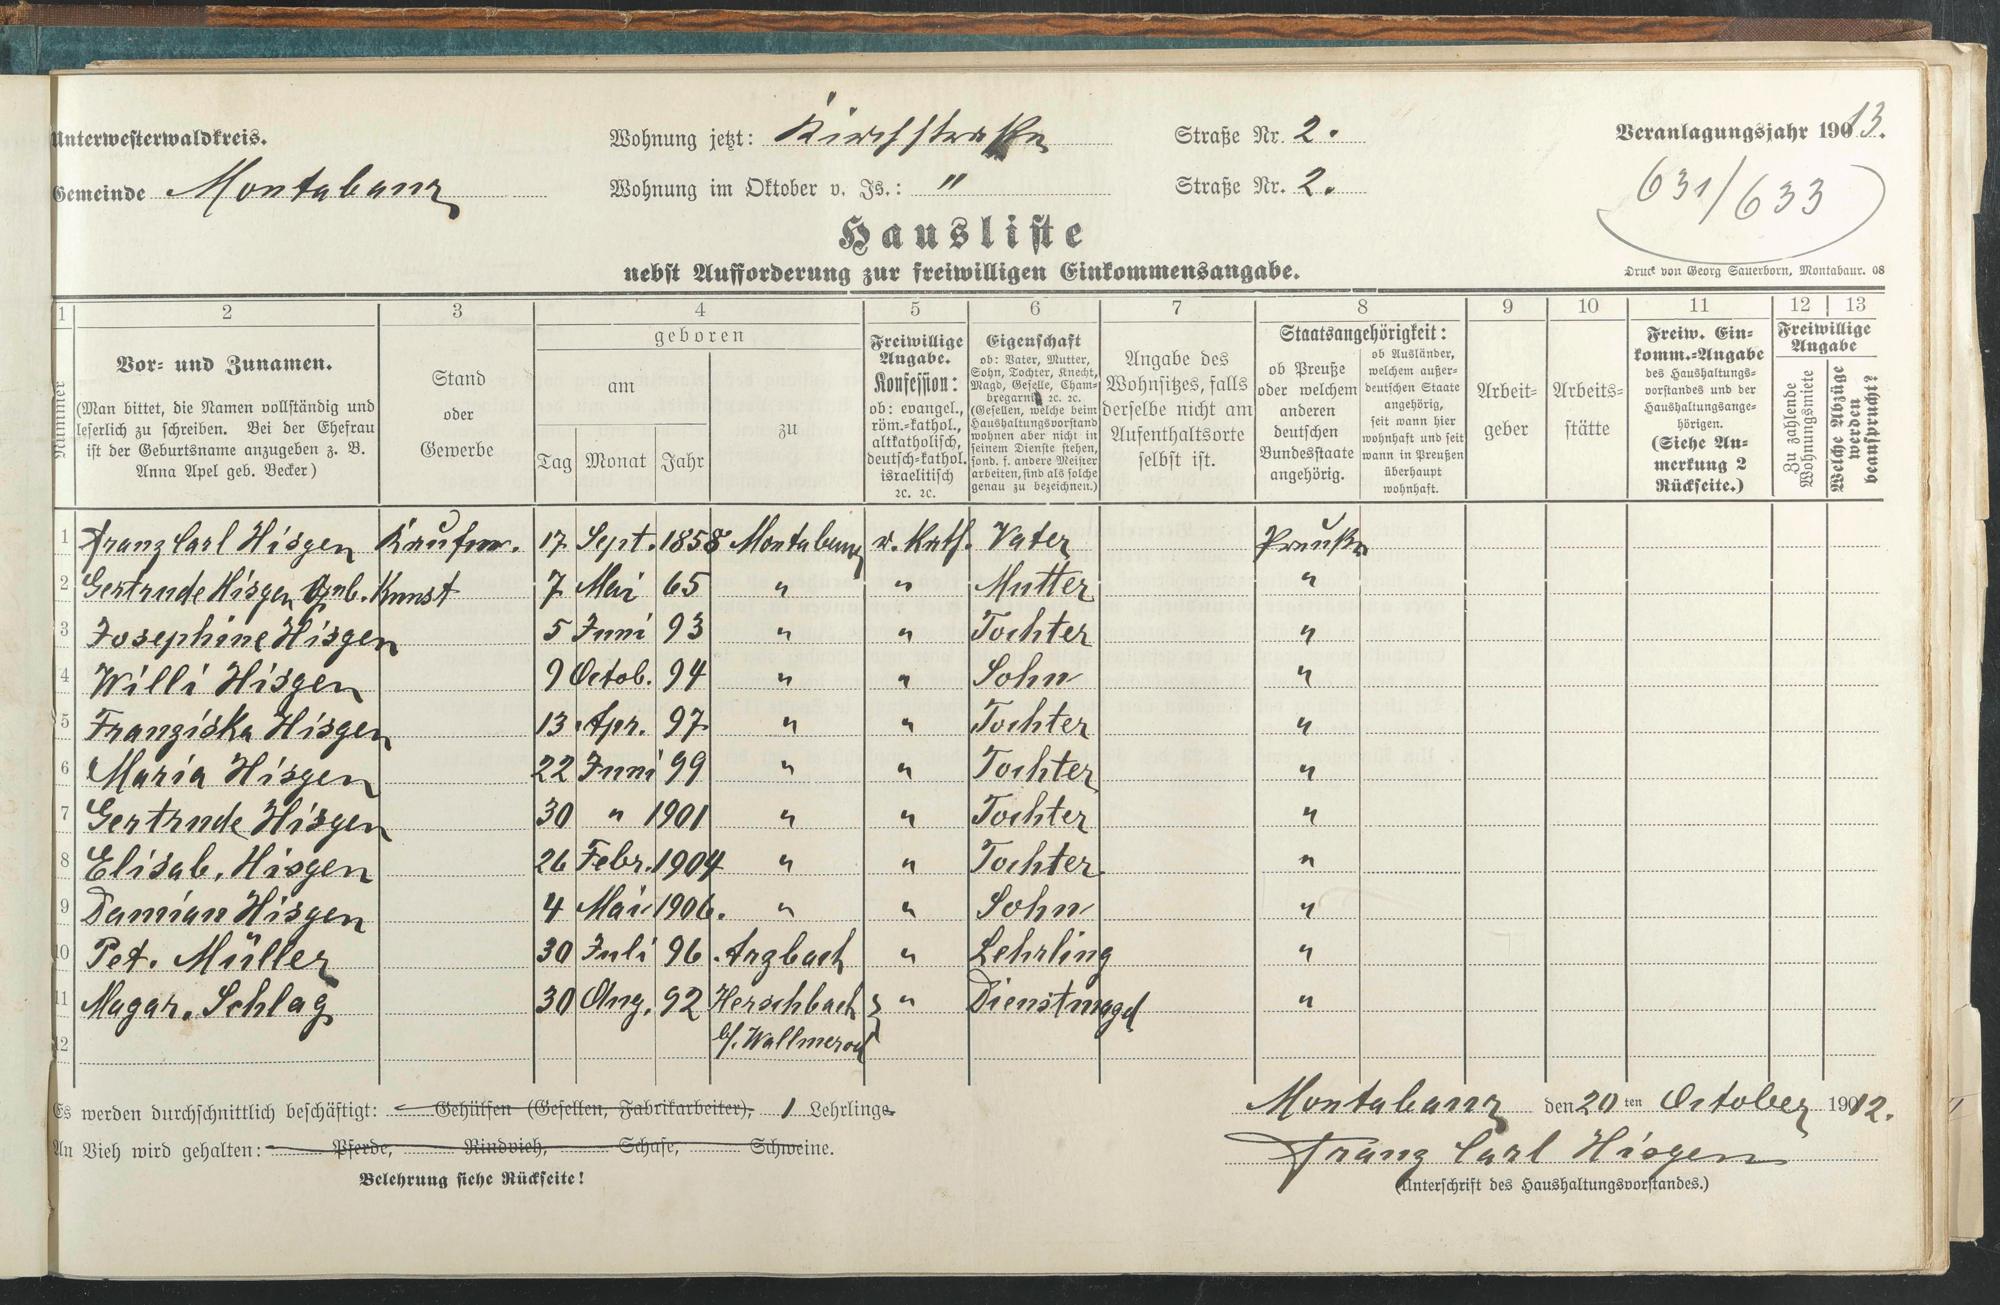 Unterwesterwaldkreis.
Wohnung jetzt: Kirchstraße Straße Nr. 2.
Veranlagungsjahr 1913.
Gemeinde Montabaur
Wohnung im Oktober v. Js.: " Straße Nr. 2.
631/633
Hausliste
nebst Aufforderung zur freiwilligen Einkommensangabe.
Druck von Georg Sauerborn, Montabaur. 08
1 2 3 4 5 6 7 8 9 10 11 12 13
Nummer
Vor- und Zunamen.
(Man bittet, die Namen vollständig und
leserlich zu schreiben. Bei der Ehefrau
ist der Geburtsname anzugeben z. B.
Anna Apel geb. Becker)
Stand
oder
Gewerbe
geboren
am
Tag Monat Jahr
zu
Freiwillige
Angabe.
Konfession:
ob: evangel.,
röm.-kathol.,
altkatholisch,
deutsch-kathol.
israelitisch
2c. 2c.
Eigenschaft
ob: Vater, Mutter,
Sohn, Tochter, Knecht,
Magd, Geselle, Cham-
bregarnist 2c. 2c.
(Gesellen, welche beim
Haushaltungsvorstand
wohnen aber nicht in
seinem Dienste stehen,
sond. f. andere Meister
arbeiten, sind als solche
genau zu bezeichnen.)
Angabe des
Wohnsitzes, falls
derselbe nicht am
Aufenthaltsorte
selbst ist.
Staatsangehörigkeit:
ob Preuße
oder welchem
anderen
deutschen
Bundesstaate
angehörig.
ob Ausländer,
welchem außer-
deutschen Staate
angehörig,
seit wann hier
wohnhaft und seit
wann in Preußen
überhaupt
wohnhaft.
Arbeit-
geber
Arbeits-
stätte
Freiw. Ein-
komm.-Angabe
des Haushaltungs-
vorstandes und der
Haushaltungsange-
hörigen.
(Siehe An-
merkung 2
Rückseite.)
Freiwillige
Angabe
Zu zahlende
Wohnungsmiete
Welche Abzüge
werden
beansprucht?
1 Franz Carl Hisgen Kaufm. 17 Sept. 1858 Montabaur r. Kath. Vater Preuße
2 Gertrude Hisgen geb. Kunst 7 Mai 65 " " Mutter "
3 Josephine Hisgen 5 Juni 93 " " Tochter "
4 Willi Hisgen 9 Octob. 94 " " Sohn "
5 Franziska Hisgen 13 Apr. 97 " " Tochter "
6 Maria Hisgen 22 Juni 99 " " Tochter "
7 Gertrude Hisgen 30 " 1901 " " Tochter "
8 Elisab. Hisgen 26 Febr. 1904 " " Tochter "
9 Damian Hisgen 4 Mai 1906. " " Sohn "
10 Pet. Müller 30 Juli 96 Arzbach " Lehrling "
11 Magar. Schlag 30 Aug. 92 Herschbach " Dienstmagd "
12 b/. Wallmerod
Es werden durchschnittlich beschäftigt: Gehülfen (Gesellen, Fabrikarbeiter), 1 Lehrlinge.
Montabaur den 20 ten October 1912.
An Vieh wird gehalten: Pferde, Rindvieh, Schafe, Schweine.
Franz Carl Hisgen
Belehrung siehe Rückseite!
(Unterschrift des Haushaltungsvorstandes.)